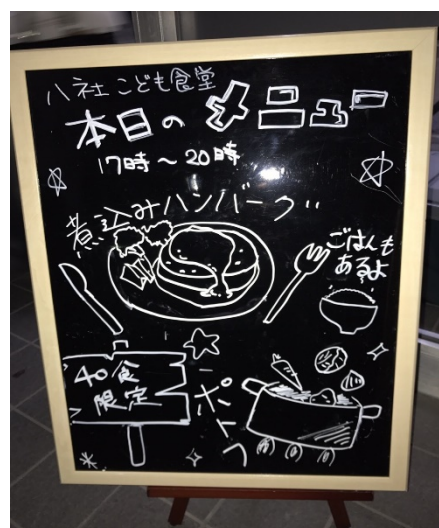 八社 こども食堂
本日の メニュー
17時～20時
煮込みハンバーグ
ごはんも
あるよ
40食
限定
ポトフ